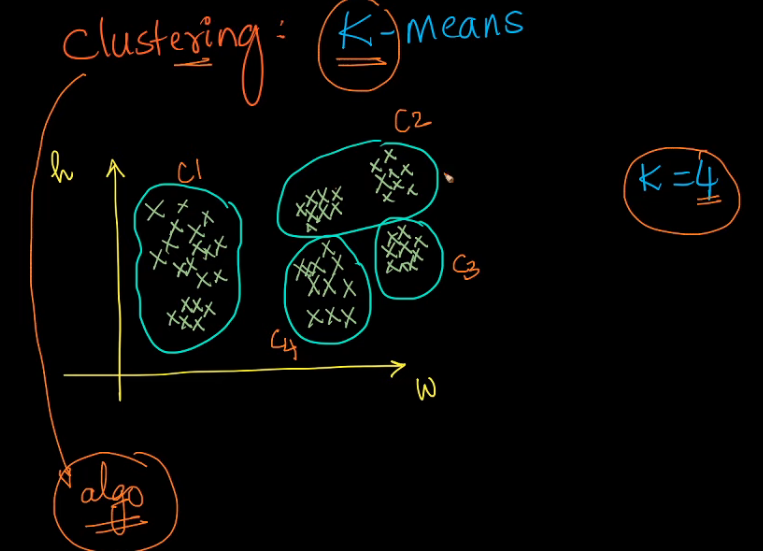 Clustering: K-means
C2
h
C1
K=4
C3
C4
W
algo